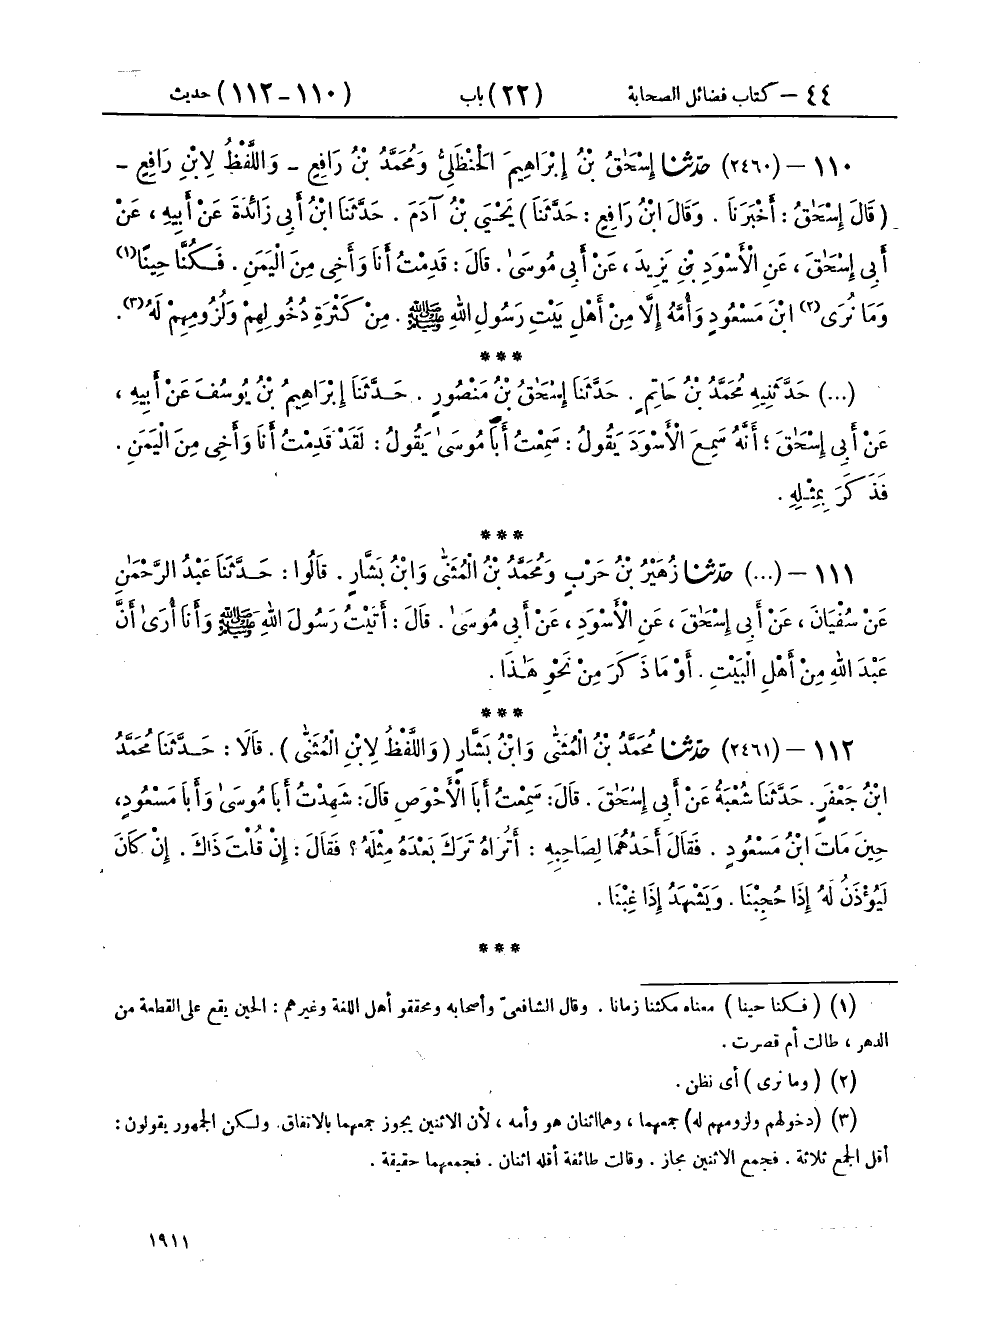 ٤٤ – كتاب فضائل الصحابة (٢٢) باب (١١٠–١١٢) حديث
١١٠ – (٢٤٦٠) حَدَّثَنَا إِسْحَاقُ بْنُ إِبْرَاهِيمَ الْحَنْظَلِيُّ وَمُحَمَّدُ بْنُ رَافِعٍ – وَاللَّفْظُ لِابْنِ رَافِعٍ –
(قَالَ إِسْحَاقُ : أَخْبَرَنَا . وَقَالَ ابْنُ رَافِعٍ : حَدَّثَنَا) يَحْيَىٰ بْنُ آدَمَ . حَدَّثَنَا ابْنُ أَبِي زَائِدَةَ عَنْ أَبِيهِ ، عَنْ
أَبِي إِسْحَاقَ ، عَنِ الْأَسْوَدِ بْنِ يَزِيدَ ، عَنْ أَبِي مُوسَىٰ . قَالَ : قَدِمْتُ أَنَا وَأَخِي مِنَ الْيَمَنِ . فَكُنَّا حِينًا(١)
وَمَا نُرَىٰ(٢) ابْنَ مَسْعُودٍ وَأُمَّهُ إِلَّا مِنْ أَهْلِ بَيْتِ رَسُولِ اللهِ ﷺ . مِنْ كَثْرَةِ دُخُولِهِمْ وَلُزُومِهِمْ لَهُ(٣).
***
(...) حَدَّثَنِيهِ مُحَمَّدُ بْنُ حَاتِمٍ . حَدَّثَنَا إِسْحَاقُ بْنُ مَنْصُورٍ . حَدَّثَنَا إِبْرَاهِيمُ بْنُ يُوسُفَ عَنْ أَبِيهِ ،
عَنْ أَبِي إِسْحَاقَ ؛ أَنَّهُ سَمِعَ الْأَسْوَدَ يَقُولُ : سَمِعْتُ أَبَا مُوسَىٰ يَقُولُ : لَقَدْ قَدِمْتُ أَنَا وَأَخِي مِنَ الْيَمَنِ .
فَذَكَرَ بِمِثْلِهِ .
***
١١١ – (...) حَدَّثَنَا زُهَيْرُ بْنُ حَرْبٍ وَمُحَمَّدُ بْنُ الْمُثَنَّىٰ وَابْنُ بَشَّارٍ . قَالُوا : حَدَّثَنَا عَبْدُ الرَّحْمَٰنِ
عَنْ سُفْيَانَ ، عَنْ أَبِي إِسْحَاقَ ، عَنِ الْأَسْوَدِ ، عَنْ أَبِي مُوسَىٰ . قَالَ : أَتَيْتُ رَسُولَ اللهِ ﷺ وَأَنَا أُرَىٰ أَنَّ
عَبْدَ اللهِ مِنْ أَهْلِ الْبَيْتِ . أَوْ مَا ذَكَرَ مِنْ نَحْوِ هَٰذَا .
***
١١٢ – (٢٤٦١) حَدَّثَنَا مُحَمَّدُ بْنُ الْمُثَنَّىٰ وَابْنُ بَشَّارٍ (وَاللَّفْظُ لِابْنِ الْمُثَنَّىٰ) . قَالَا : حَدَّثَنَا مُحَمَّدُ
ابْنُ جَعْفَرٍ . حَدَّثَنَا شُعْبَةُ عَنْ أَبِي إِسْحَاقَ . قَالَ : سَمِعْتُ أَبَا الْأَحْوَصِ قَالَ : شَهِدْتُ أَبَا مُوسَىٰ وَأَبَا مَسْعُودٍ،
حِينَ مَاتَ ابْنُ مَسْعُودٍ . فَقَالَ أَحَدُهُمَا لِصَاحِبِهِ : أَتُرَاهُ تَرَكَ بَعْدَهُ مِثْلَهُ ؟ فَقَالَ : إِنْ قُلْتَ ذَاكَ . إِنْ كَانَ
لَيُؤْذَنُ لَهُ إِذَا حُجِبْنَا . وَيَشْهَدُ إِذَا غِبْنَا .
***
(١) (فكنا حينا) معناه مكثنا زمانا . وقال الشافعىّ وأصحابه ومحققو أهل اللغة وغيرهم : الحين يقع على القطعة من
الدهر ، طالت أم قصرت .
(٢) (وما نرى) أى نظن .
(٣) (دخولهم ولزومهم له) جمعهما ، وهما اثنان هو وأمه ، لأن الاثنين يجوز جمعهما بالاتفاق. ولكن الجمهور يقولون :
أقل الجمع ثلاثة . فجمع الاثنين مجاز . وقالت طائفة أقله اثنان . فجمعهما حقيقة .
١٩١١